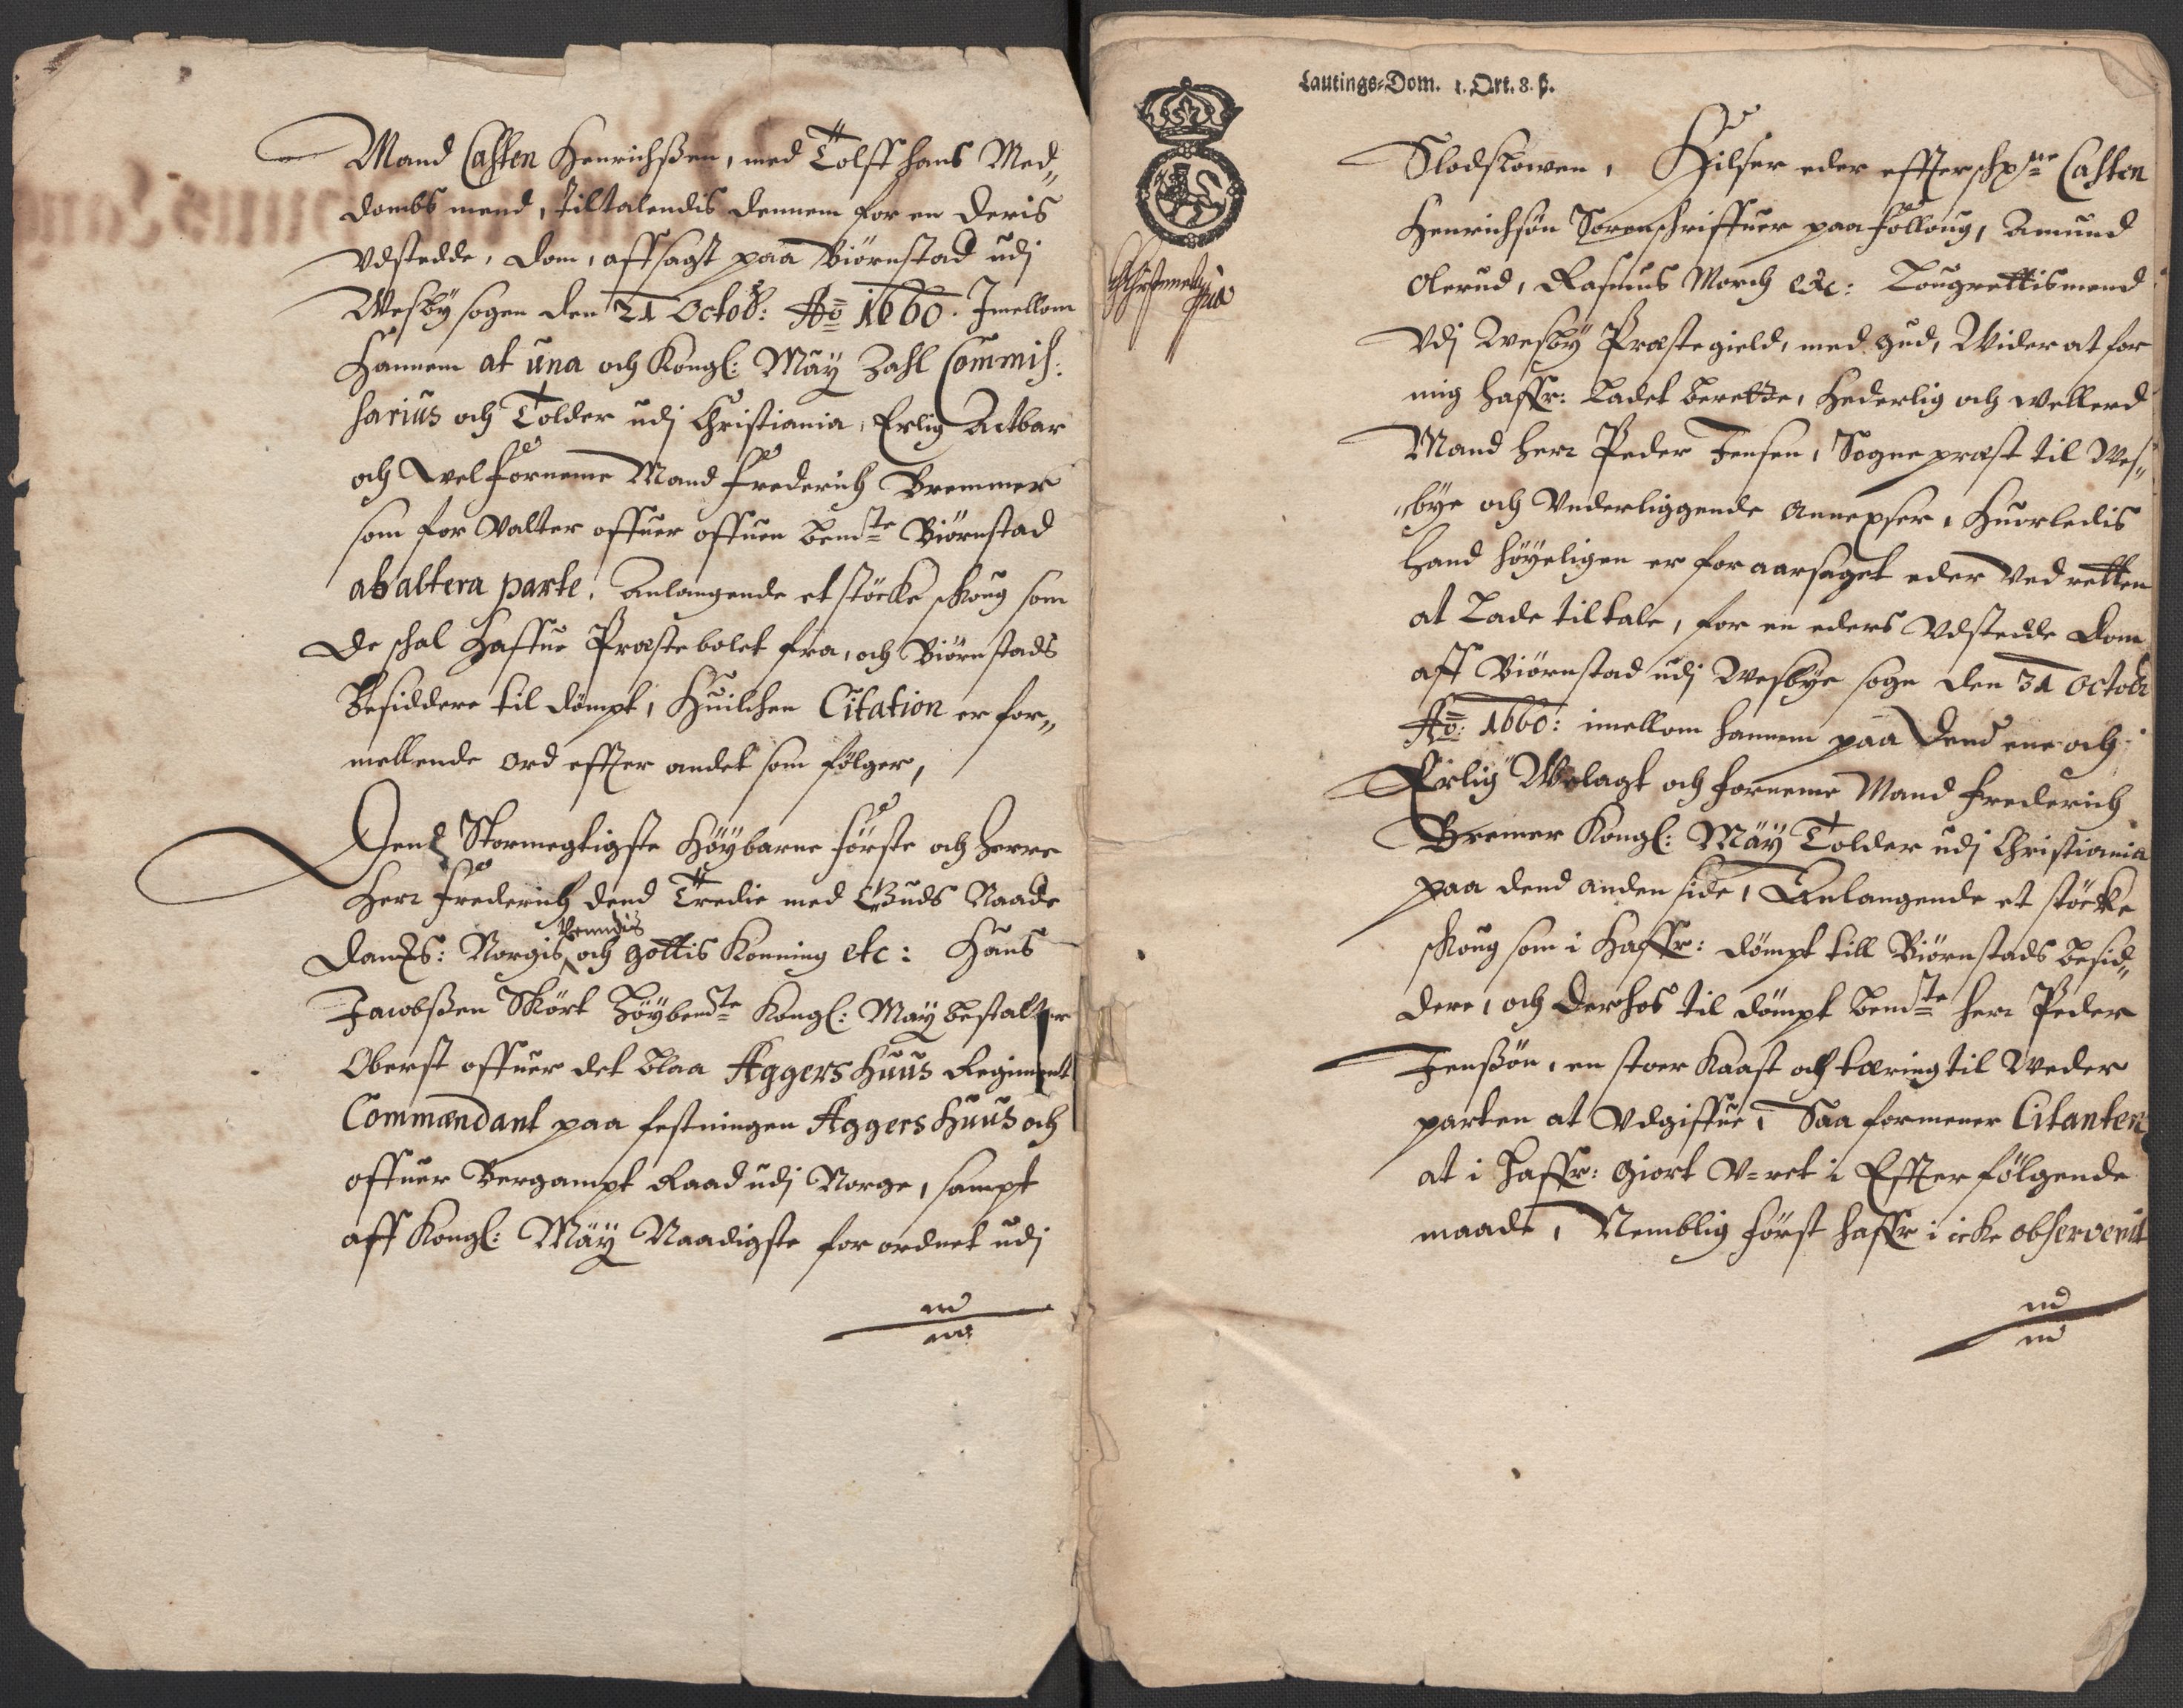 Mand Casten Henrichssen, med Tolff hans Med„
dombs mend, tiltalendis dennem for en deris
Vdstedde, dom, affsagt paa Biörnstad udj
Wesby sogen den 21 Octob: Ao 1660. Imellom
Hannem at una och Kongl: May Zahl Commis:
sarius och Tolder udj Christiania, Erlig Actbar
och Velforneme Mand Frederich Bremmer
som for Valter offuer offuen bemdte Biörnstad
ab altera parte. Anlangende et støcke skoug som
de schal haffue Præstebolet fra, och Biörnstads
Besiddere til dömpt, Huilchen Citation er for„
mellende ord effter andet som fölger,
Dend Stormegtigste Höybarne Förste och Herre
Herr Frederich dend Tredie med Guds Naade
Danms: Norgis, Venndis och Gottis Konning etc: Hans
Jacobssen Skört Höybemdte Kongl: May bestalter
Oberst offuer det blaa Aggershuus Regiment
Commendant paa festningen Aggershuus och
offuer Bergampt Raad udj Norge, sampt
aff Kongl: Mäy Naadigste forordnet udj
Lautings-Dom. 1. Ort. 8. ß.
Slodslowen, Hilser eder effterschrne Casten
Henrichsön Sorenschriffuer paa Folloug, Amund
Olerud, Rasmus Morch etc: Lougrettismend
Vdj Wesby Præstegield, med gud, Wider at for
mig haffr: Ladet berette, Hederlig och wellerd
Mand Herr Peder Jensen, Sogneprest til Wes„
„bye och Vnderliggende Annexser, Huorledis
Hand höyeligen er foraarsaget eder Ved retten
at Lade tiltale, for en eders Vdstedde Dom
aff Biörnstad udj Wesbye sogn den 31 Octobr
Ao: 1660: imellom hannem paa dend ene och
Erlig Welagt och Forneme Mand Frederich
Bremer Kongl: Mäy Tolder udj Christiania
paa dend anden side, Anlangende et støcke
skoug som i Haffr: dömpt till Biörnstads besid„
dere, och derhos til dömpt bemdte Herr Peder
Jenssön, en stoer Kaast och tæring til Weder
parten at Vdgiffue, Saa formener Citanten
at i haffr: giort V-ret i Effterfölgende
maade, Nemblig först haffr i icke observerit